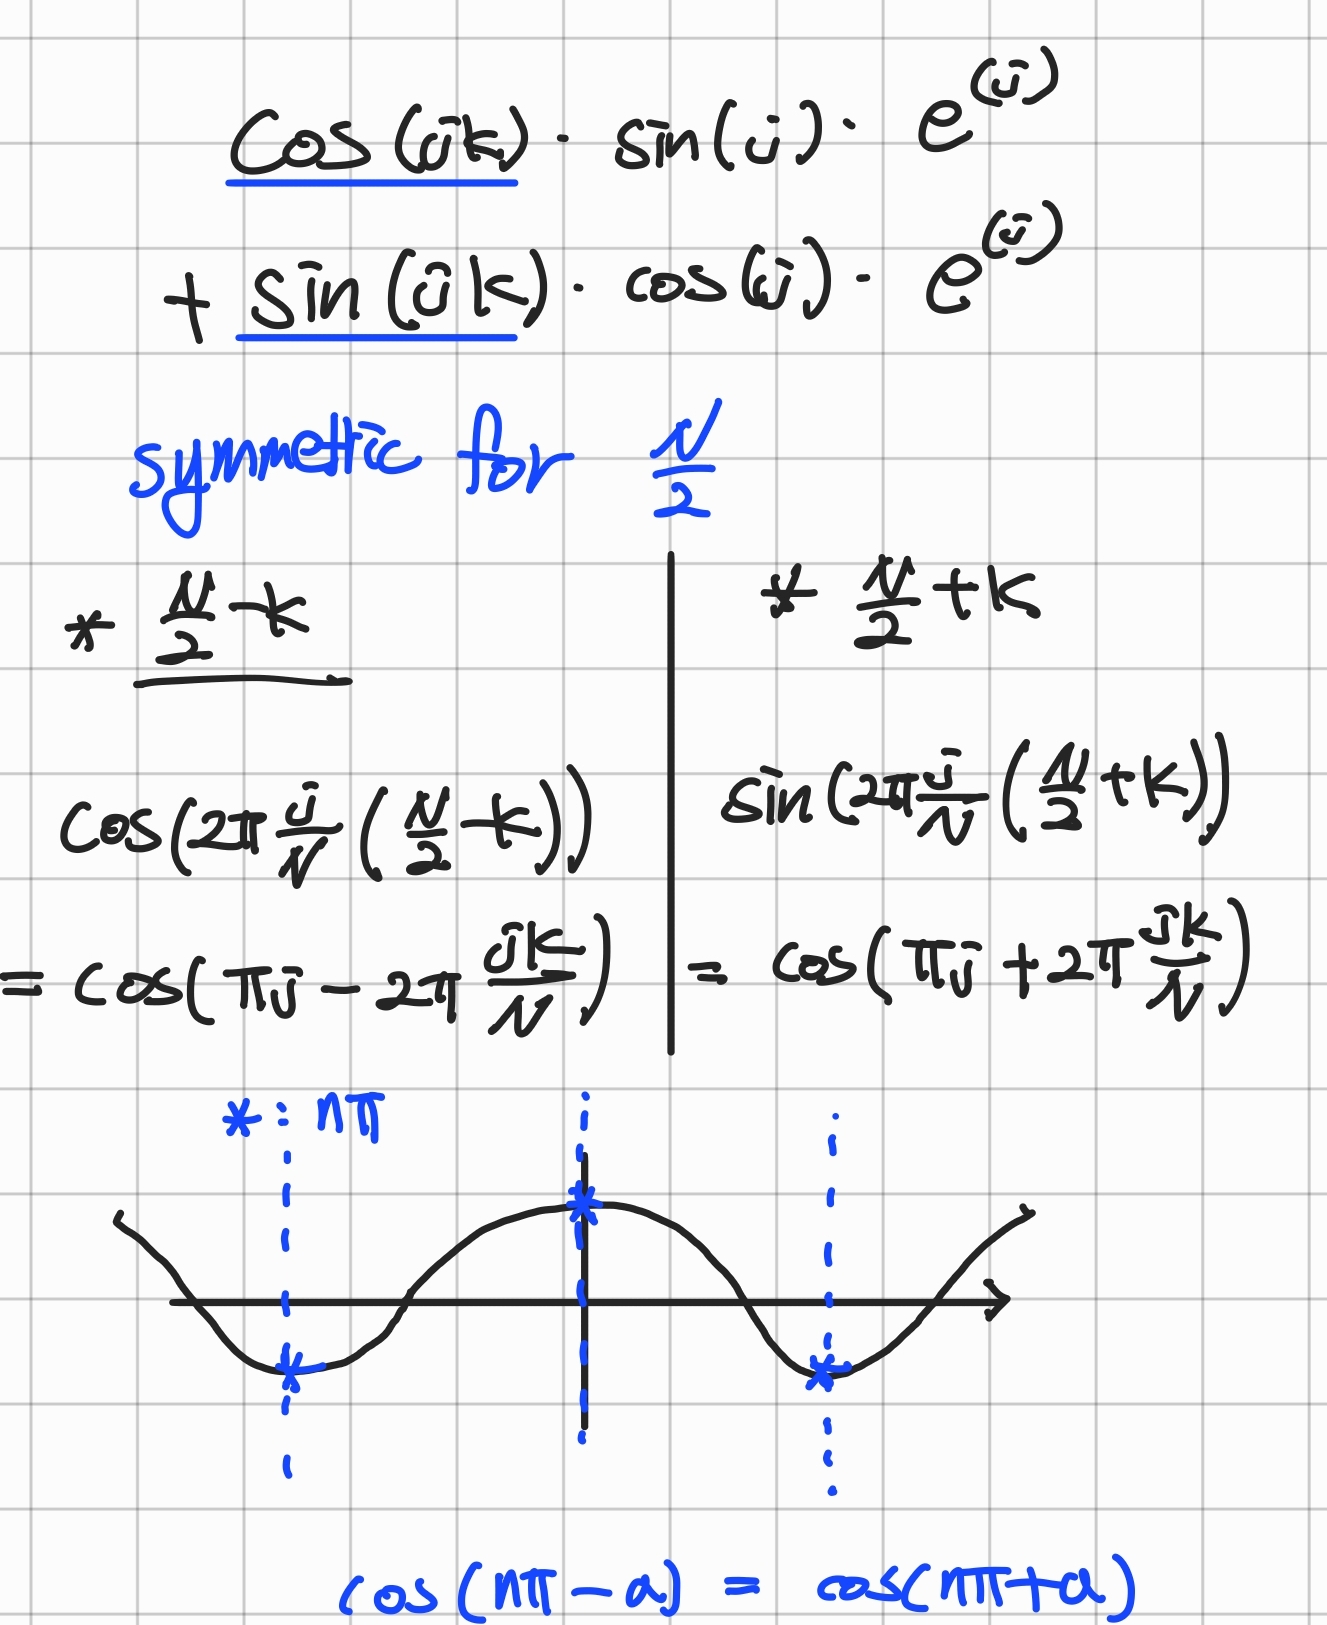 cos(jk) · sin(j) · e^(j)
+ sin(jk) · cos(j) · e^(j)
symmetric for N/2
* N/2 - k
cos(2π j/N (N/2 - k))
= cos(πj - 2π jk/N)
* N/2 + k
sin(2π j/N (N/2 + k))
= cos(πj + 2π jk/N)
* : nπ
cos(nπ - a) = cos(nπ + a)